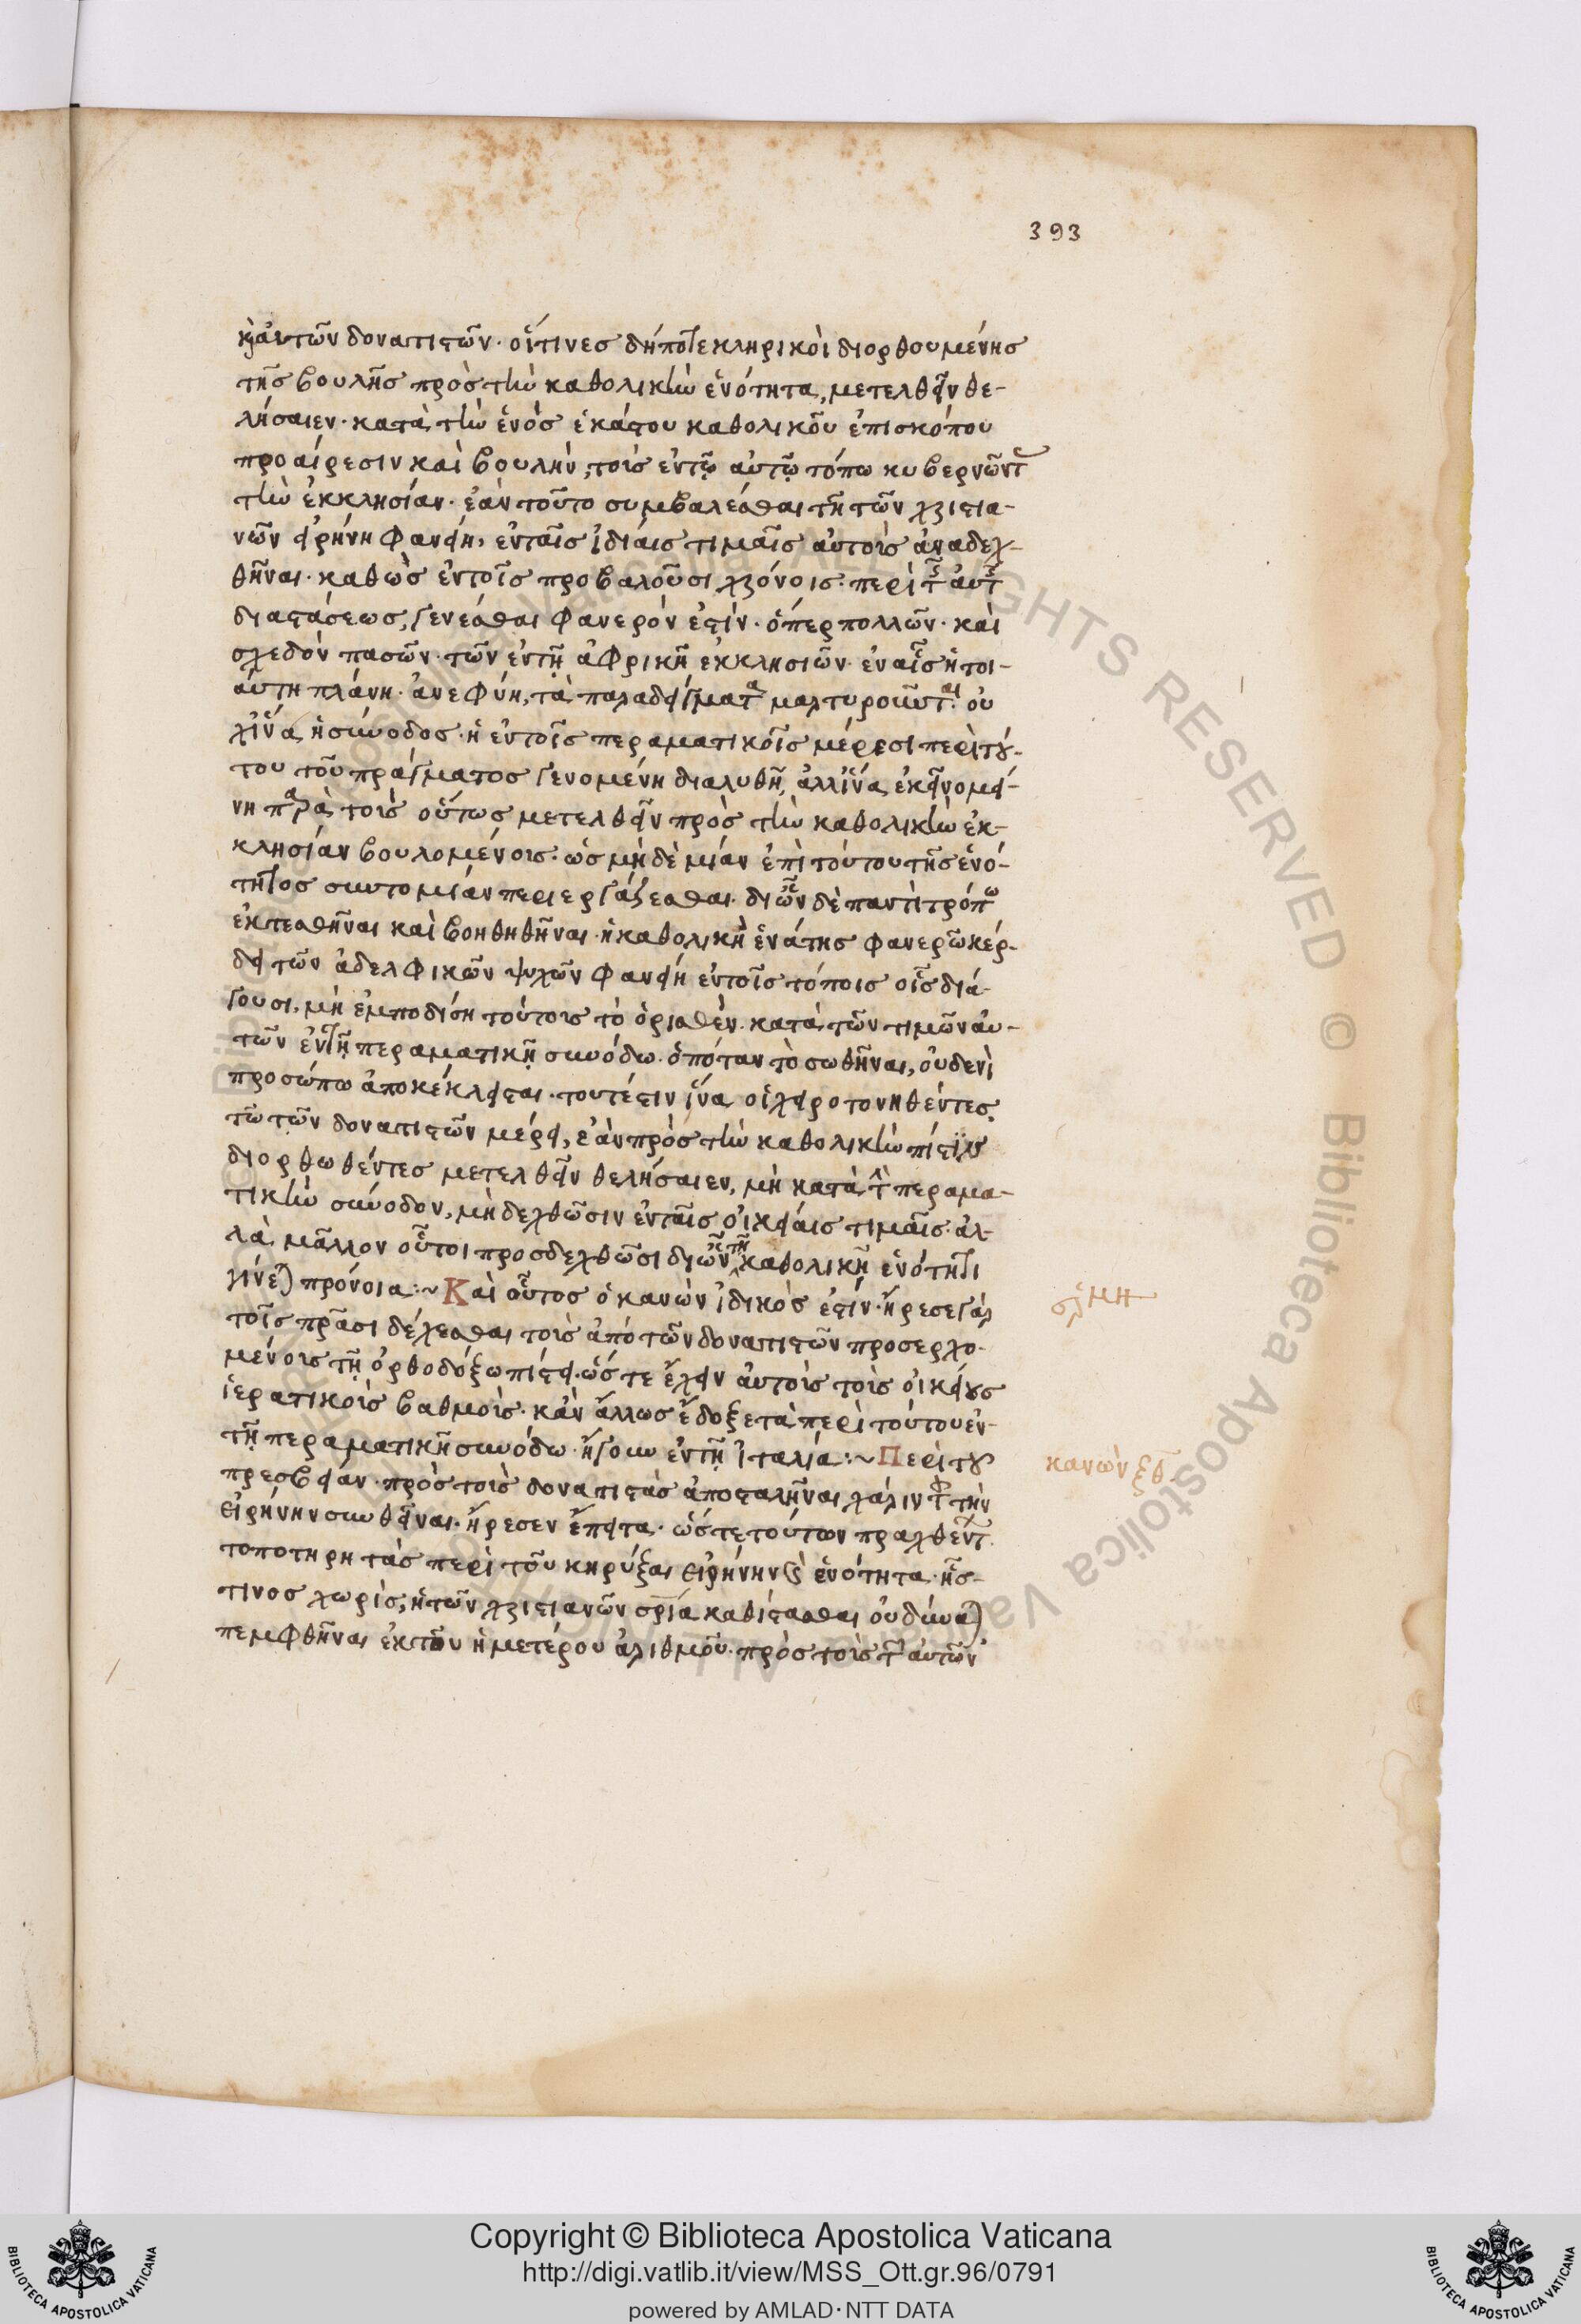 393
καὶ αὐτῶν δονατιστῶν· οἵτινες δήποτε κληρικοὶ διορθουμένης
τῆς βουλῆς πρὸς τὴν καθολικὴν ἑνότητα, μετελθεῖν θε-
λήσαιεν· κατὰ τὴν ἑνὸς ἑκάστου καθολικοῦ ἐπισκόπου
προαίρεσιν καὶ βουλήν, τοῖς ἐν τῷ αὐτῷ τόπω κυβερνῶντ
τὴν ἐκκλησίαν· ἐὰν τοῦτο συμβαλέσθαι τῆ τῶν χριστια-
νῶν εἰρήνη φανείη, ἐν ταῖς ἰδίαις τιμαῖς αὐτοὺς ἀναδεχ-
θῆναι· καθὼς ἐν τοῖς προβαλοῦσι χρόνοις· περὶ τῆς αὐτῆς
διαστάσεως, γενέσθαι φανερόν ἐστίν· ὅπερ πολλῶν· καὶ
σχεδὸν πασῶν· τῶν ἐν τῇ ἀφρικῆ ἐκκλησιῶν· ἐν αἷς ἡ τοι-
αύτη πλάνη· ἀνεφύη, τὰ παραδείγματα μαρτυροῦνται· οὐ
χ ἵνα ἡ σύνοδος· ἡ ἐν τοῖς περαματικοῖς μέρεσι περὶ τού-
του τοῦ πράγματος γενομένη διαλυθῆ, ἀλλ ἵνα ἐκεῖνο μεί-
νη παρὰ τοῖς οὕτως μετελθεῖν πρὸς τὴν καθολικὴν ἐκ-
κλησίαν βουλομένοις· ὡς μὴ δὲ μίαν ἐπὶ τούτου τῆς ἑνό-
τητος συντομίαν περιεργάζεσθαι· δι ὧν δὲ παντὶ τρόπω
ἐκτεσθῆναι καὶ βοηθηθῆναι· ἡ καθολικὴ ἑνάτης φανερῶ κέρ-
δει τῶν ἀδελφικῶν ψυχῶν φανείη ἐν τοῖς τόποις οἷς διά-
γουσι, μὴ ἐμποδίση τούτοις τὸ ὁρισθὲν· κατὰ τῶν τιμῶν αὐ-
τῶν ἐν τῇ περαματικῇ συνόδω· ὁπόταν τὸ σωθῆναι, οὐδενὶ
προσώπω ἀποκέκλεισται· τουτέστιν ἵνα οἱ χειροτονηθέντες
τῶ τῶν δονατιστῶν μέρει, ἐὰν πρὸς τὴν καθολικὴν πίστιν
διορθωθέντες μετελθεῖν θελήσαιεν, μὴ κατὰ τὴν περαμα-
τικὴν σύνοδον, μὴ δεχθῶσιν ἐν ταῖς οἰκείαις τιμαῖς· ἀλ-
λὰ μᾶλλον οὗτοι προσδεχθῶσι δι ὧν τῇ καθολικῇ ἑνότητι
γίνεται πρόνοια :~ Καὶ οὗτος ὁ κανὼν ἰδικός ἐστίν· ἤρεσε γὰρ
τοῖς πρᾶσι δέχεσθαι τοὺς ἀπὸ τῶν δονατιστῶν προσερχο-
μένοις τῇ ὀρθοδόξω πίστει· ὥστε ἔχειν αὐτοὺς τοὺς οἰκείους
ἱερατικοὺς βαθμοὺς· κἀν ἄλλως ἔδοξε τὰ περὶ τούτου ἐν-
τῇ περαματικῇ συνόδω· ἤγουν ἐν τῇ ἰταλία :~ Περὶ τοῦ
πρεσβείαν· πρὸς τοὺς δονατιστὰς ἀποσταλῆναι χάριν τοῦ τὴν
εἰρήνην συνθεῖναι· ἤρεσεν ἔπειτα· ὥστε τούτων πραχθέντ
τοποτηρητὰς περὶ τοῦ κηρύξαι εἰρήνην καὶ ἑνότητα· ἧς-
τινος χωρὶς, ἡ τῶν χριστιανῶν σρία καθίστασθαι οὐ δύναται
πεμφθῆναι ἐκ τοῦ ἡμετέρου ἀριθμοῦ· πρὸς τοὺς τῶν αὐτῶν
κανὼν ξθ
Copyright © Biblioteca Apostolica Vaticana
http://digi.vatlib.it/view/MSS_Ott.gr.96/0791
powered by AMLAD · NTT DATA